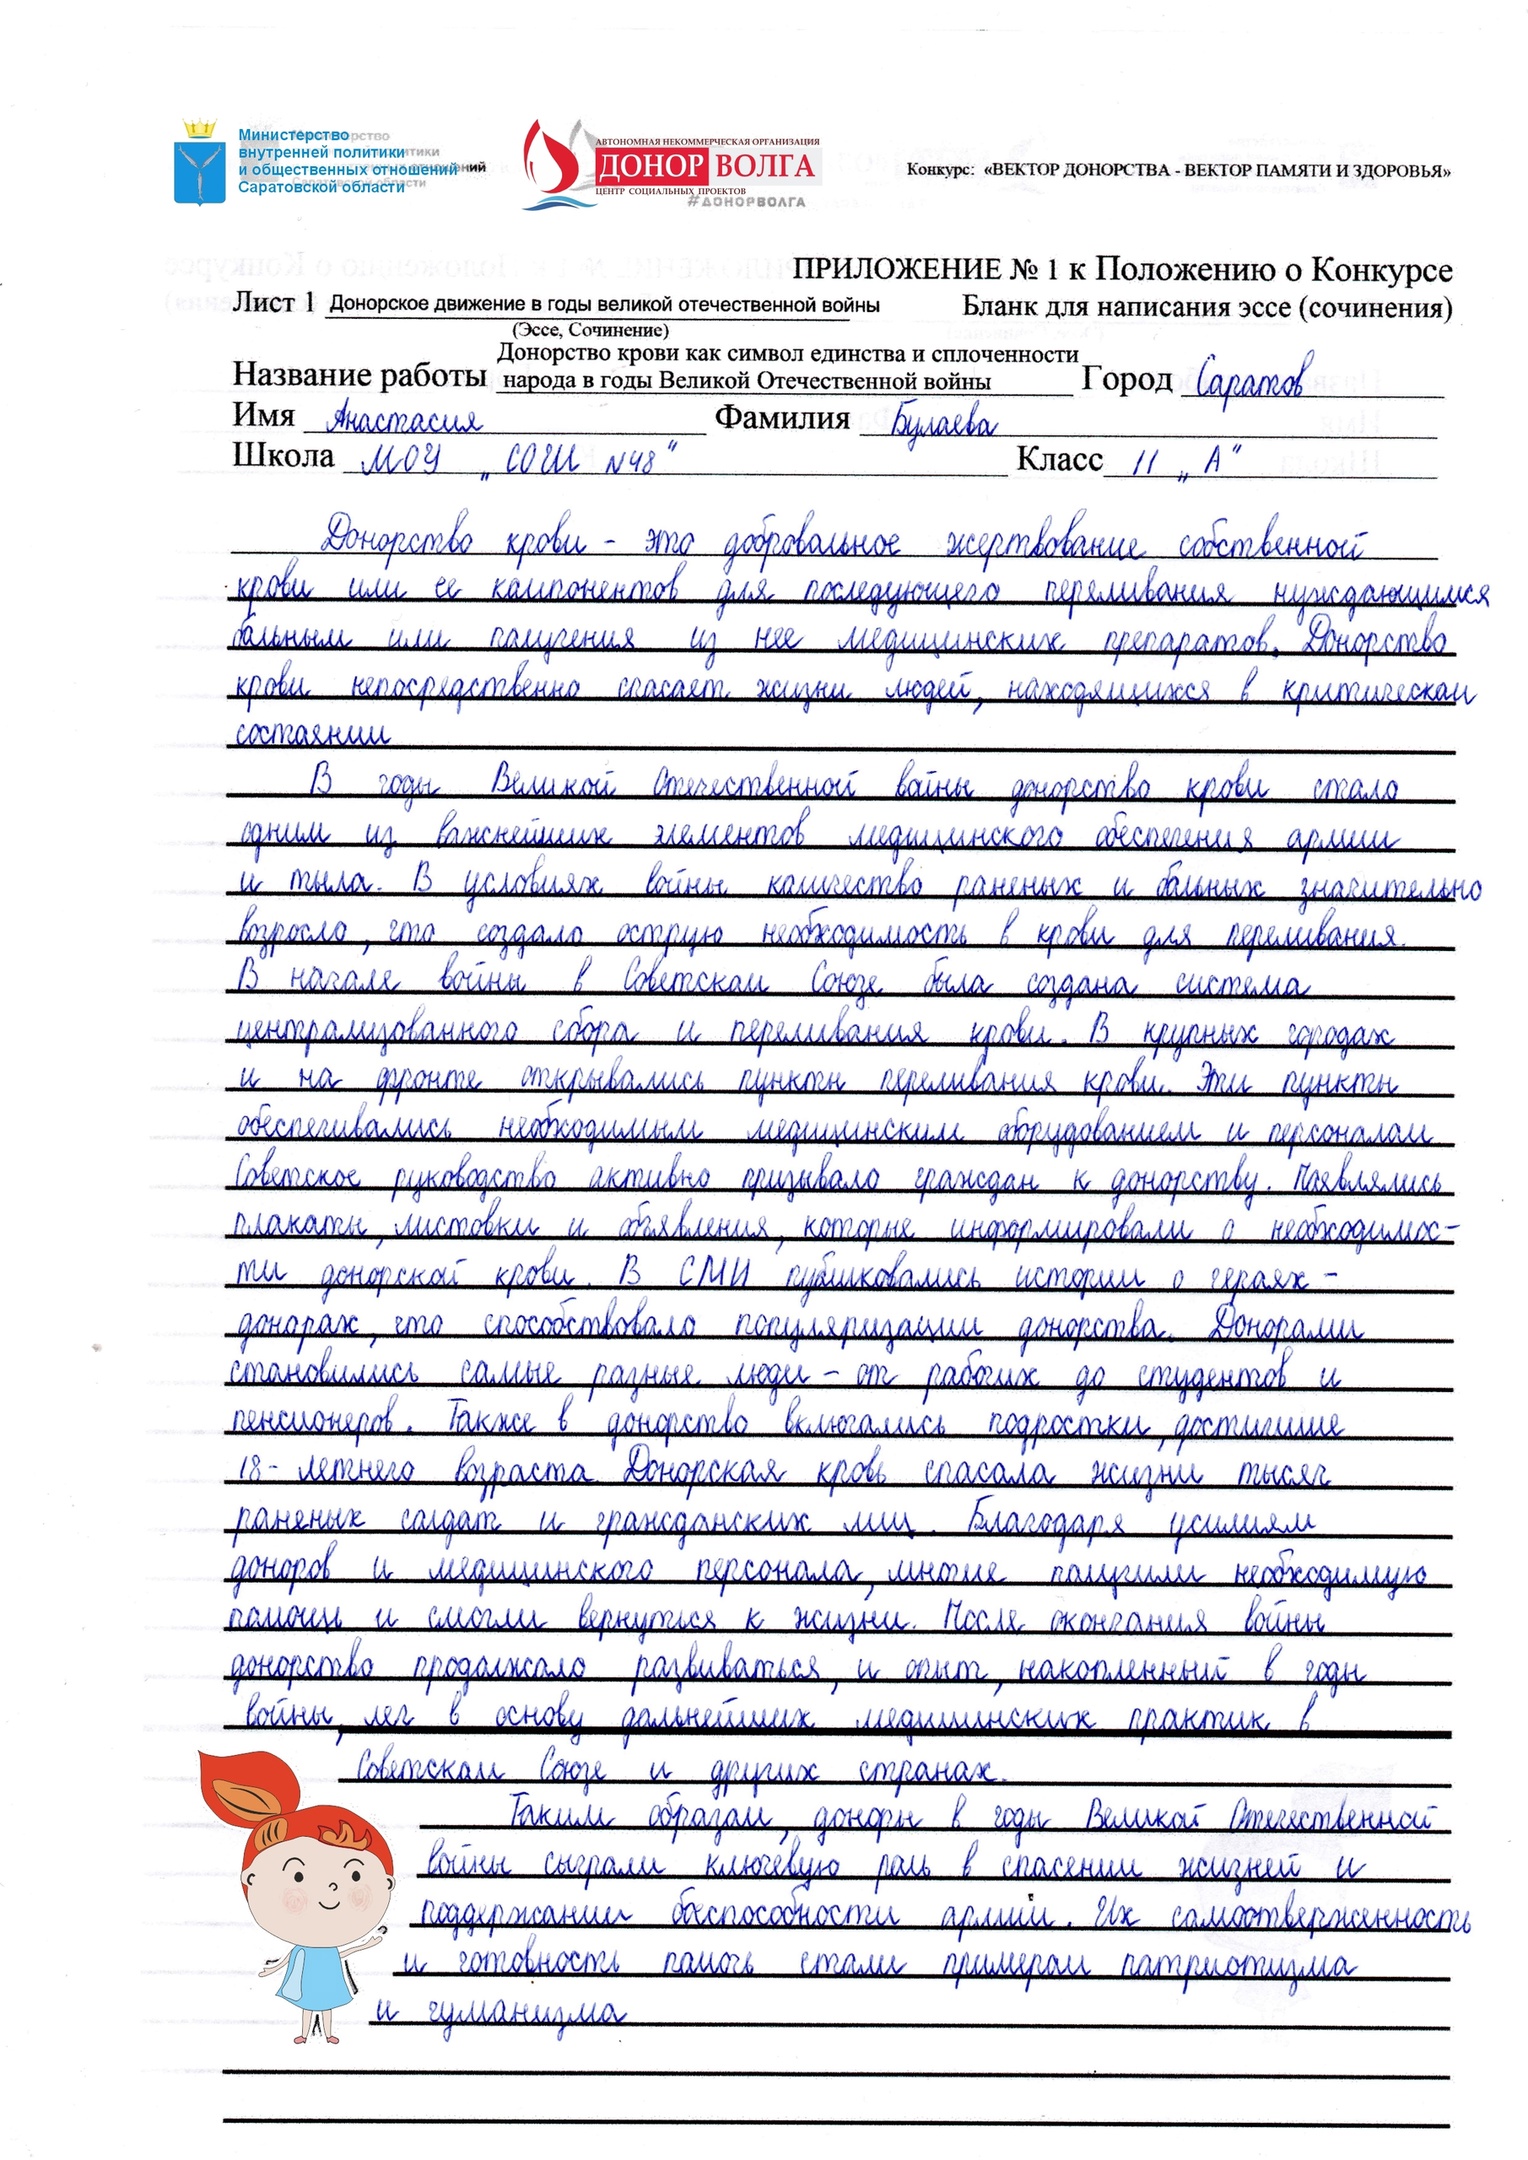 Министерство
внутренней политики
и общественных отношений
Саратовской области
АВТОНОМНАЯ НЕКОММЕРЧЕСКАЯ ОРГАНИЗАЦИЯ
ДОНОР ВОЛГА
ЦЕНТР СОЦИАЛЬНЫХ ПРОЕКТОВ
#ДОНОРВОЛГА
Конкурс: «ВЕКТОР ДОНОРСТВА - ВЕКТОР ПАМЯТИ И ЗДОРОВЬЯ»
ПРИЛОЖЕНИЕ № 1 к Положению о Конкурсе
Лист 1 Донорское движение в годы великой отечественной войны Бланк для написания эссе (сочинения)
(Эссе, Сочинение)
Донорство крови как символ единства и сплоченности
Название работы народа в годы Великой Отечественной войны Город Саратов
Имя Анастасия Фамилия Булаева
Школа МОУ „СОШ №48" Класс 11 „А"
Донорство крови - это добровольное жертвование собственной
крови или ее компонентов для последующего переливания нуждающимся
больным или получения из нее медицинских препаратов. Донорство
крови непосредственно спасает жизни людей, находящихся в критическом
состоянии
В годы Великой Отечественной войны донорство крови стало
одним из важнейших элементов медицинского обеспечения армии
и тыла. В условиях войны количество раненых и больных значительно
возросло, что создало острую необходимость в крови для переливания.
В начале войны в Советском Союзе была создана система
централизованного сбора и переливания крови. В крупных городах
и на фронте открывались пункты переливания крови. Эти пункты
обеспечивались необходимым медицинским оборудованием и персоналом
Советское руководство активно призывало граждан к донорству. Появлялись
плакаты, листовки и объявления, которые информировали о необходимос-
ти донорской крови. В СМИ публиковались истории о героях -
донорах, что способствовало популяризации донорства. Донорами
становились самые разные люди - от рабочих до студентов и
пенсионеров. Также в донорство включались подростки, достигшие
18-летнего возраста. Донорская кровь спасала жизни тысяч
раненых солдат и гражданских лиц. Благодаря усилиям
доноров и медицинского персонала, многие получили необходимую
помощь и смогли вернуться к жизни. После окончания войны
донорство продолжало развиваться, и опыт, накопленный в годы
войны, лег в основу дальнейших медицинских практик в
Советском Союзе и других странах.
Таким образом, доноры в годы Великой Отечественной
войны сыграли ключевую роль в спасении жизней и
поддержании боеспособности армии. Их самоотверженность
и готовность помочь стали примером патриотизма
и гуманизма